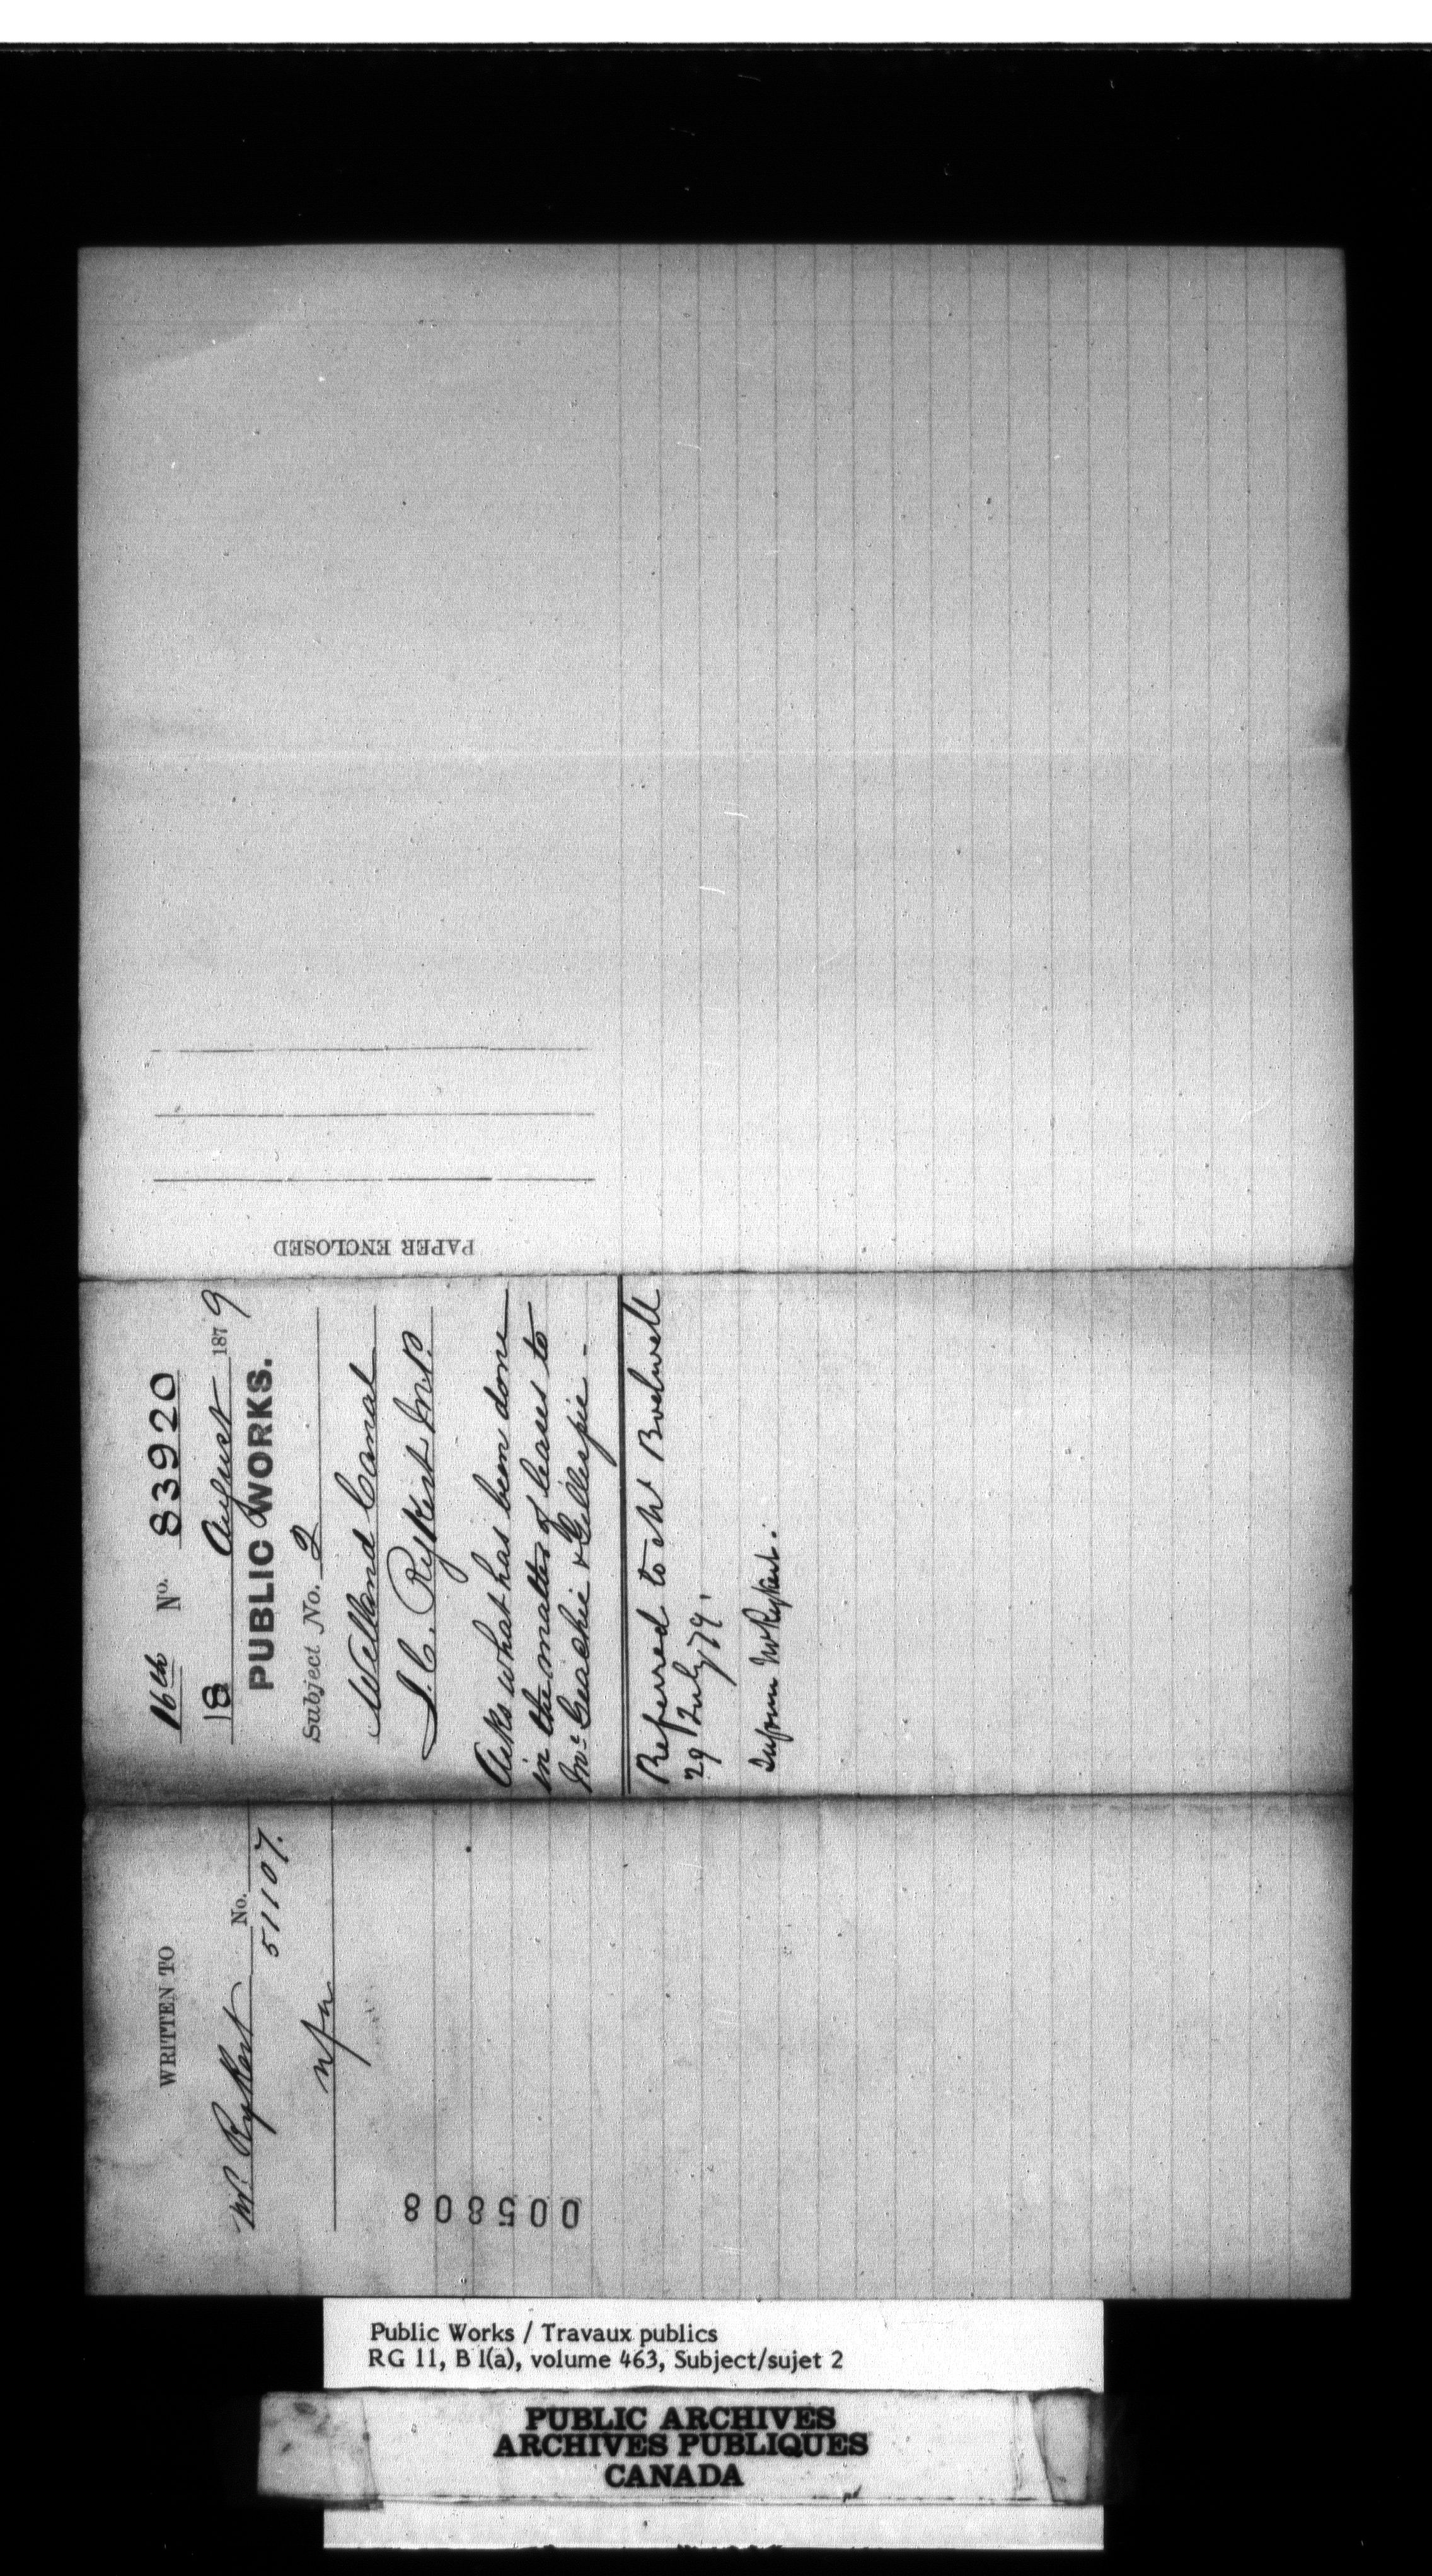 16th No. 83920
18 August 1879
PUBLIC WORKS.
Subject No. 2
Welland Canal
J. C. Rykert M.P.
Asks what has been done
in the matter of leases to
McGeachie & Gillespie -
Referred to Mr Bodwell
29 July 79.
Inform Mr Rykert.
PAPER ENCLOSED
WRITTEN TO
No.
Mr. Rykert 51107.
005808
Public Works / Travaux publics
RG 11, B 1(a), volume 463, Subject/sujet 2
PUBLIC ARCHIVES
ARCHIVES PUBLIQUES
CANADA